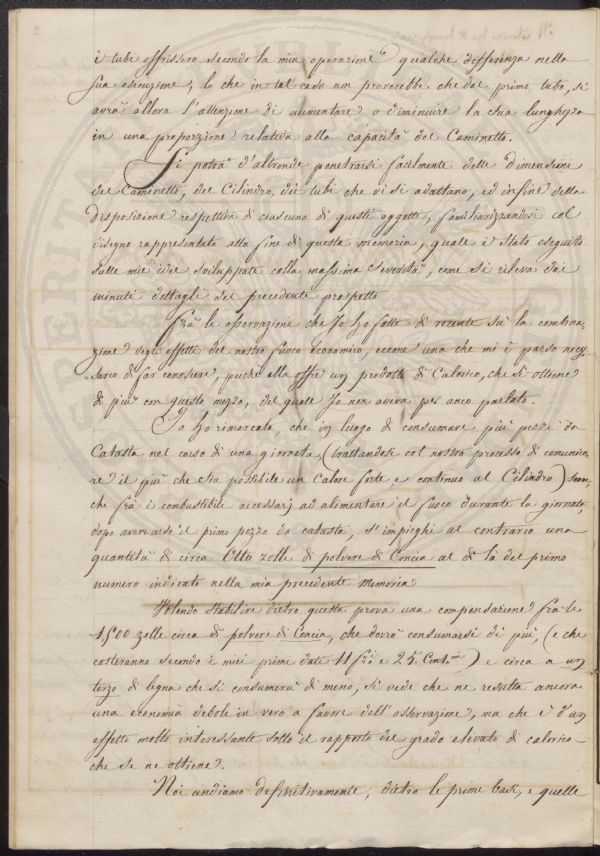 i tubi offrissero secondo la mia operazione qualche differenza nella
sua esecuzione, lo che in tal caso non proverebbe che dal primo tubo, si
avrà allora l'attenzione di aumentare o diminuire la sua lunghezza
in una proporzione relativa alla capacità del Caminetto.
Si potrà d'altronde penetrarsi facilmente delle dimensioni
del Caminetto, del Cilindro, dei tubi che vi si adattano, ed infine della
disposizione respettiva di ciascuno di questi oggetti, familiarizzandosi col
disegno rappresentato alla fine di questa memoria, quale è stato eseguito
sulle mie idee sviluppate colla massima severità, come si rileva dai
minuti dettagli del precedente prospetto
Frà le osservazione che Io hò fatte di recente sù la combina-
zione degli effetti del nostro fuoco economico, eccone una che mi è parso neces-
sario di far conoscere, poiche ella offre un prodotto di Calorico, che si ottiene
di più con questo mezzo, del quale Io non aveva per anco parlato.
Io hò rimarcato, che in luogo di consumare più pezzi da
Catasta nel corso di una giornata, (trattandosi col nostro processo di comunica-
re il più che sia possibile un Calore forte, e continuo al Cilindro)
che frà i combustibili necessarj ad alimentare il fuoco durante la giornata,
dopo avere arso il primo pezzo da catasta, s'impieghi al contrario una
quantità di circa Otto zolle di polvere di Concia al di là del primo
numero indicato nella mia precedente memoria
Volendo stabilire dietro questa prova una compensazione frà le
1,500 zolle circa di polvere di Concia, che dovrà consumarsi di più, (e che
costeranno secondo i miei primi dati 11 fchi e 25 Cent.mi) e circa a un
terzo di legna che si consumerà di meno, si vede che ne resulta ancora
una economia debole in vero a favore dell'osservazione, ma che è d'un
effetto molto interessante sotto il rapporto del grado elevato di calorico
che se ne ottiene.
Noi andiamo definitivamente, dietro le prime basi, e quelle